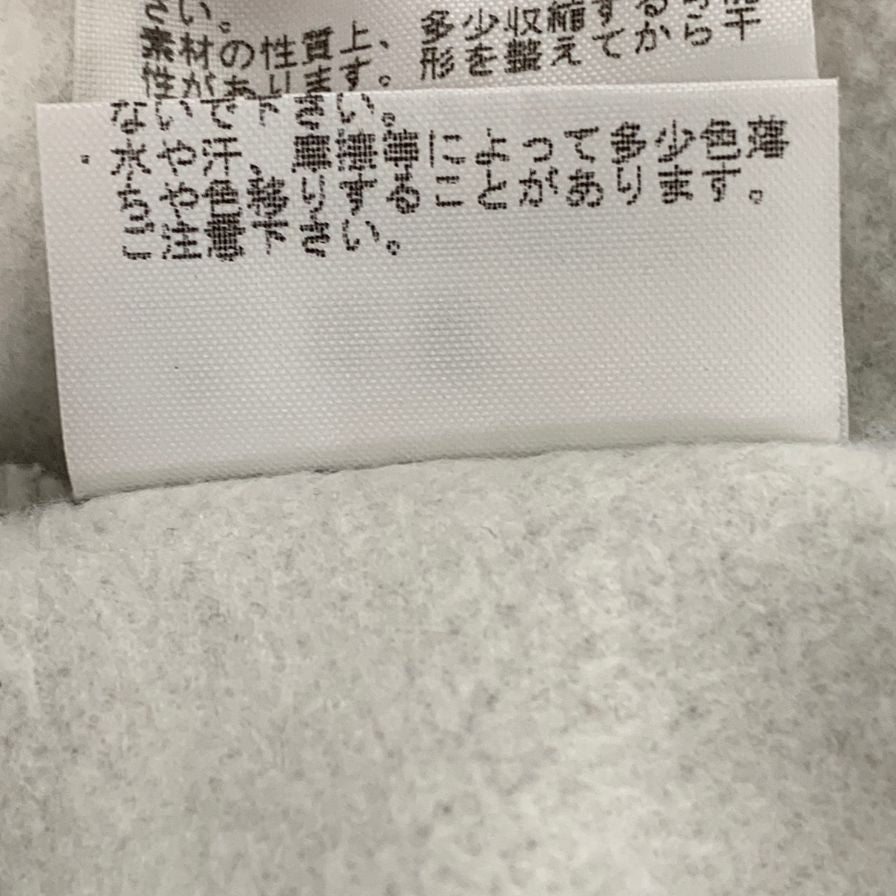 さい。
素材の性質上、多少収縮する
性があります。形を整えてから干
ないで下さい。
・水や汗、摩擦等によって多少色落
ちや色移りすることがあります。
ご注意下さい。